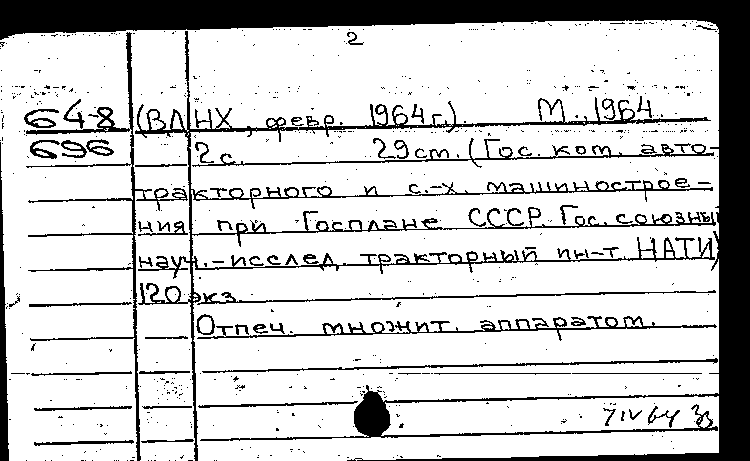 2
64-8 (ВЛНХ, февр. 1964г.). М., 1964.
696 2с. 29см. (Гос. ком. авто-
тракторного и с.-х. машинострое=
ния при Госплане СССР. Гос. союзный
науч.-исслед. тракторный ин-т НАТИ)
120 экз.
Отпеч. множит. аппаратом.
7 IV 64